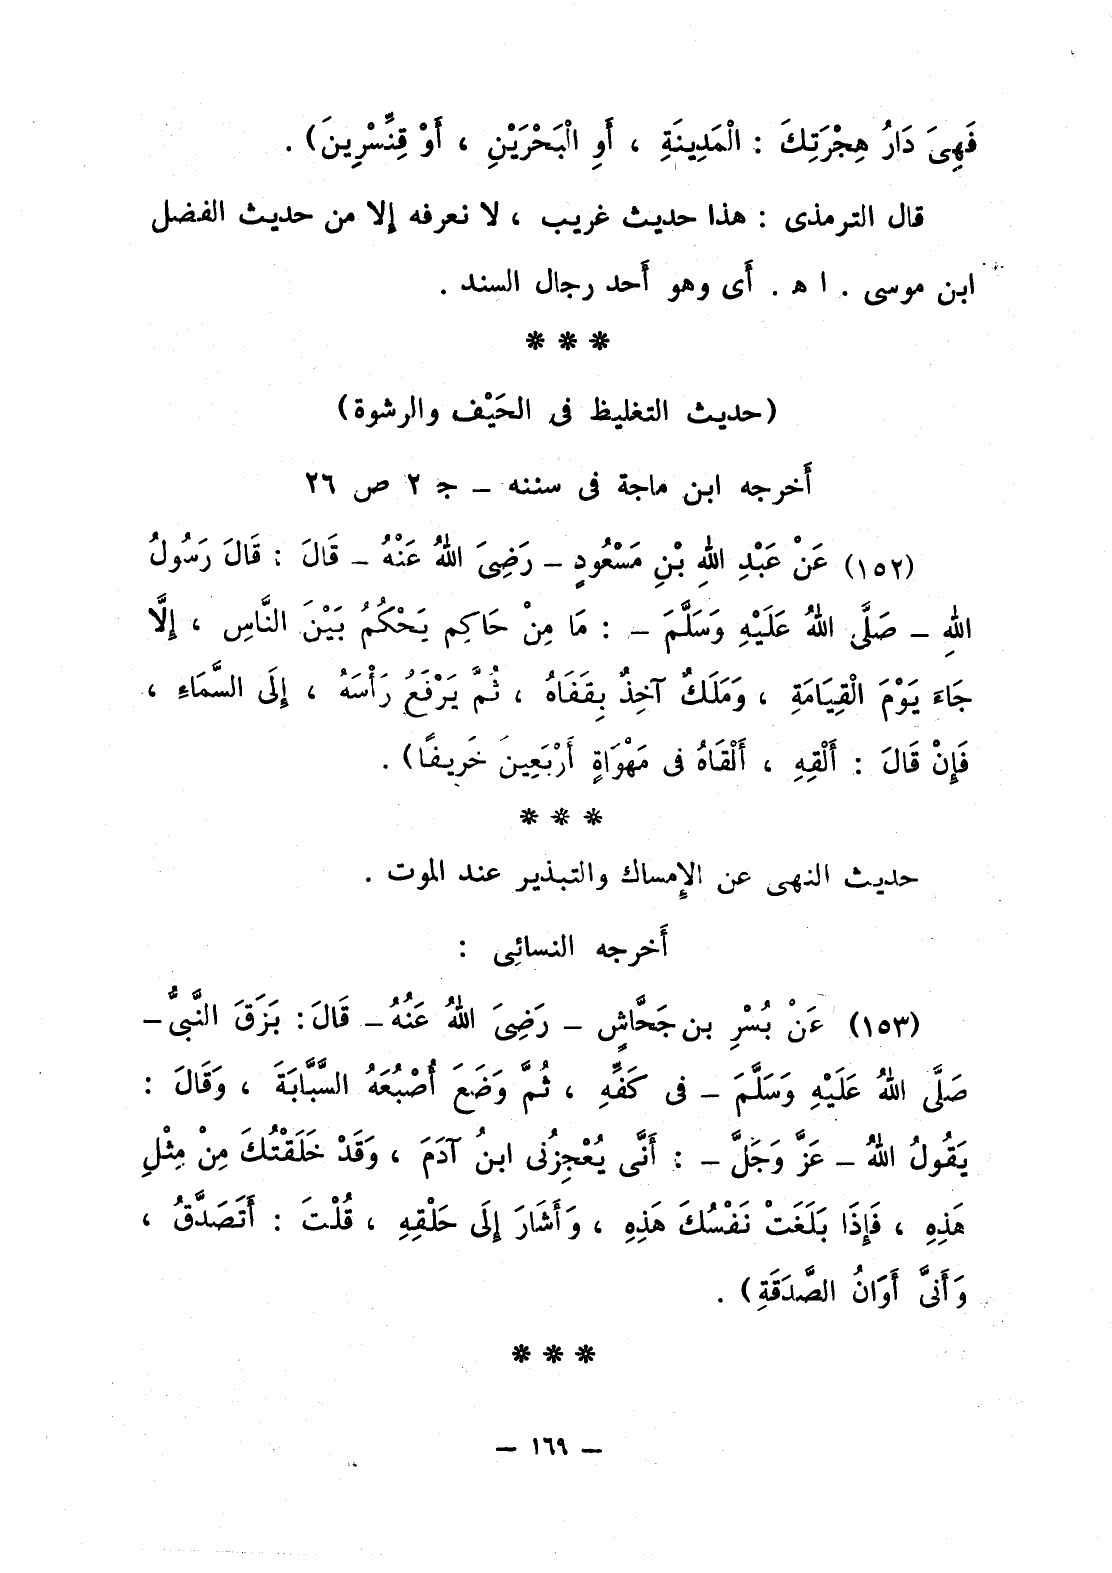 فَهِىَ دَارُ هِجْرَتِكَ : الْمَدِينَةِ ، أَوِ الْبَحْرَيْنِ ، أَوْ قِنَّسْرِينَ) .
قال الترمذى : هذا حديث غريب ، لا نعرفه إلا من حديث الفضل
ابن موسى . ا ه . أَى وهو أَحد رجال السند .
* * *
(حديث التغليظ فى الحَيْف والرشوة)
أَخرجه ابن ماجة فى سننه – ج ٢ ص ٢٦
(١٥٢) عَنْ عَبْدِ اللهِ بْنِ مَسْعُودٍ – رَضِىَ اللهُ عَنْهُ – قَالَ : قَالَ رَسُولُ
اللهِ – صَلَّى اللهُ عَلَيْهِ وَسَلَّمَ – : مَا مِنْ حَاكِم يَحْكُمُ بَيْنَ النَّاسِ ، إِلَّا
جَاءَ يَوْمَ الْقِيَامَةِ ، وَمَلَكٌ آخِذٌ بِقَفَاهُ ، ثُمَّ يَرْفَعُ رَأْسَهُ ، إِلَى السَّمَاءِ ،
فَإِنْ قَالَ : أَلْقِهِ ، أَلْقَاهُ فى مَهْوَاةٍ أَرْبَعِينَ خَرِيفًا) .
* * *
حديث النهى عن الإِمساك والتبذير عند الموت .
أَخرجه النسائِى :
(١٥٣) عَنْ بُسْرِ بن جَحَّاشٍ – رَضِىَ اللهُ عَنْهُ – قَالَ : بَزَقَ النَّبِىُّ –
صَلَّى اللهُ عَلَيْهِ وَسَلَّمَ – فى كَفِّهِ ، ثُمَّ وَضَعَ أُصْبُعَهُ السَّبَّابَةَ ، وَقَالَ :
يَقُولُ اللهُ – عَزَّ وَجَلَّ – : أَنَّى يُعْجِزُنى ابنُ آدَمَ ، وَقَدْ خَلَقْتُكَ مِنْ مِثْلِ
هَذِهِ ، فَإِذَا بَلَغَتْ نَفْسُكَ هَذِهِ ، وَأَشَارَ إِلَى حَلْقِهِ ، قُلْتَ : أَتَصَدَّقُ ،
وَأَنَّى أَوَانُ الصَّدَقَةِ) .
* * *
– ١٦٩ –